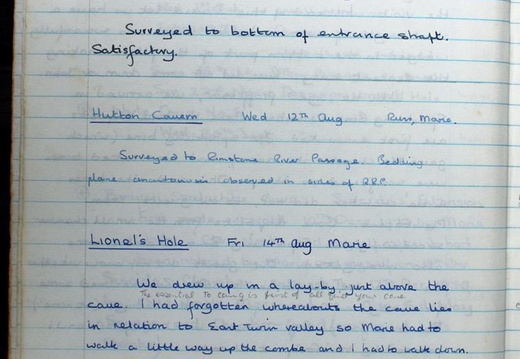 Surveyed to bottom of entrance shaft.
Satisfactory.
Hutton Cavern Wed 12th Aug Russ, Marie.
Surveyed to Rimstone River Passage. Bedding
plane observed in sides of RRP.
Lionel's Hole Fri 14th Aug Marie
We drew up in a lay-by just above the
The essential to caving is first of all find your cave
cave. I had forgotten whereabouts the cave lies
in relation to East Twin valley so Marie had to
walk a little way up the combe and I had to walk down.